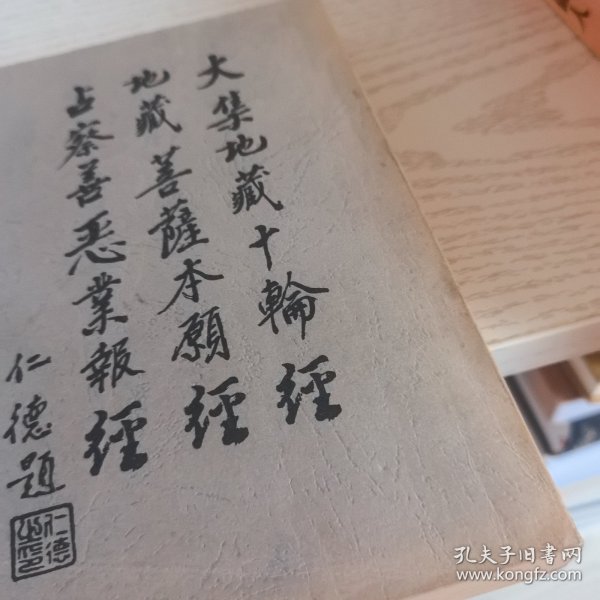 大集地藏十輪經
地藏菩薩本願經
占察善恶業報經
仁德題
仁德之印
孔夫子旧书网
www.kongfz.com